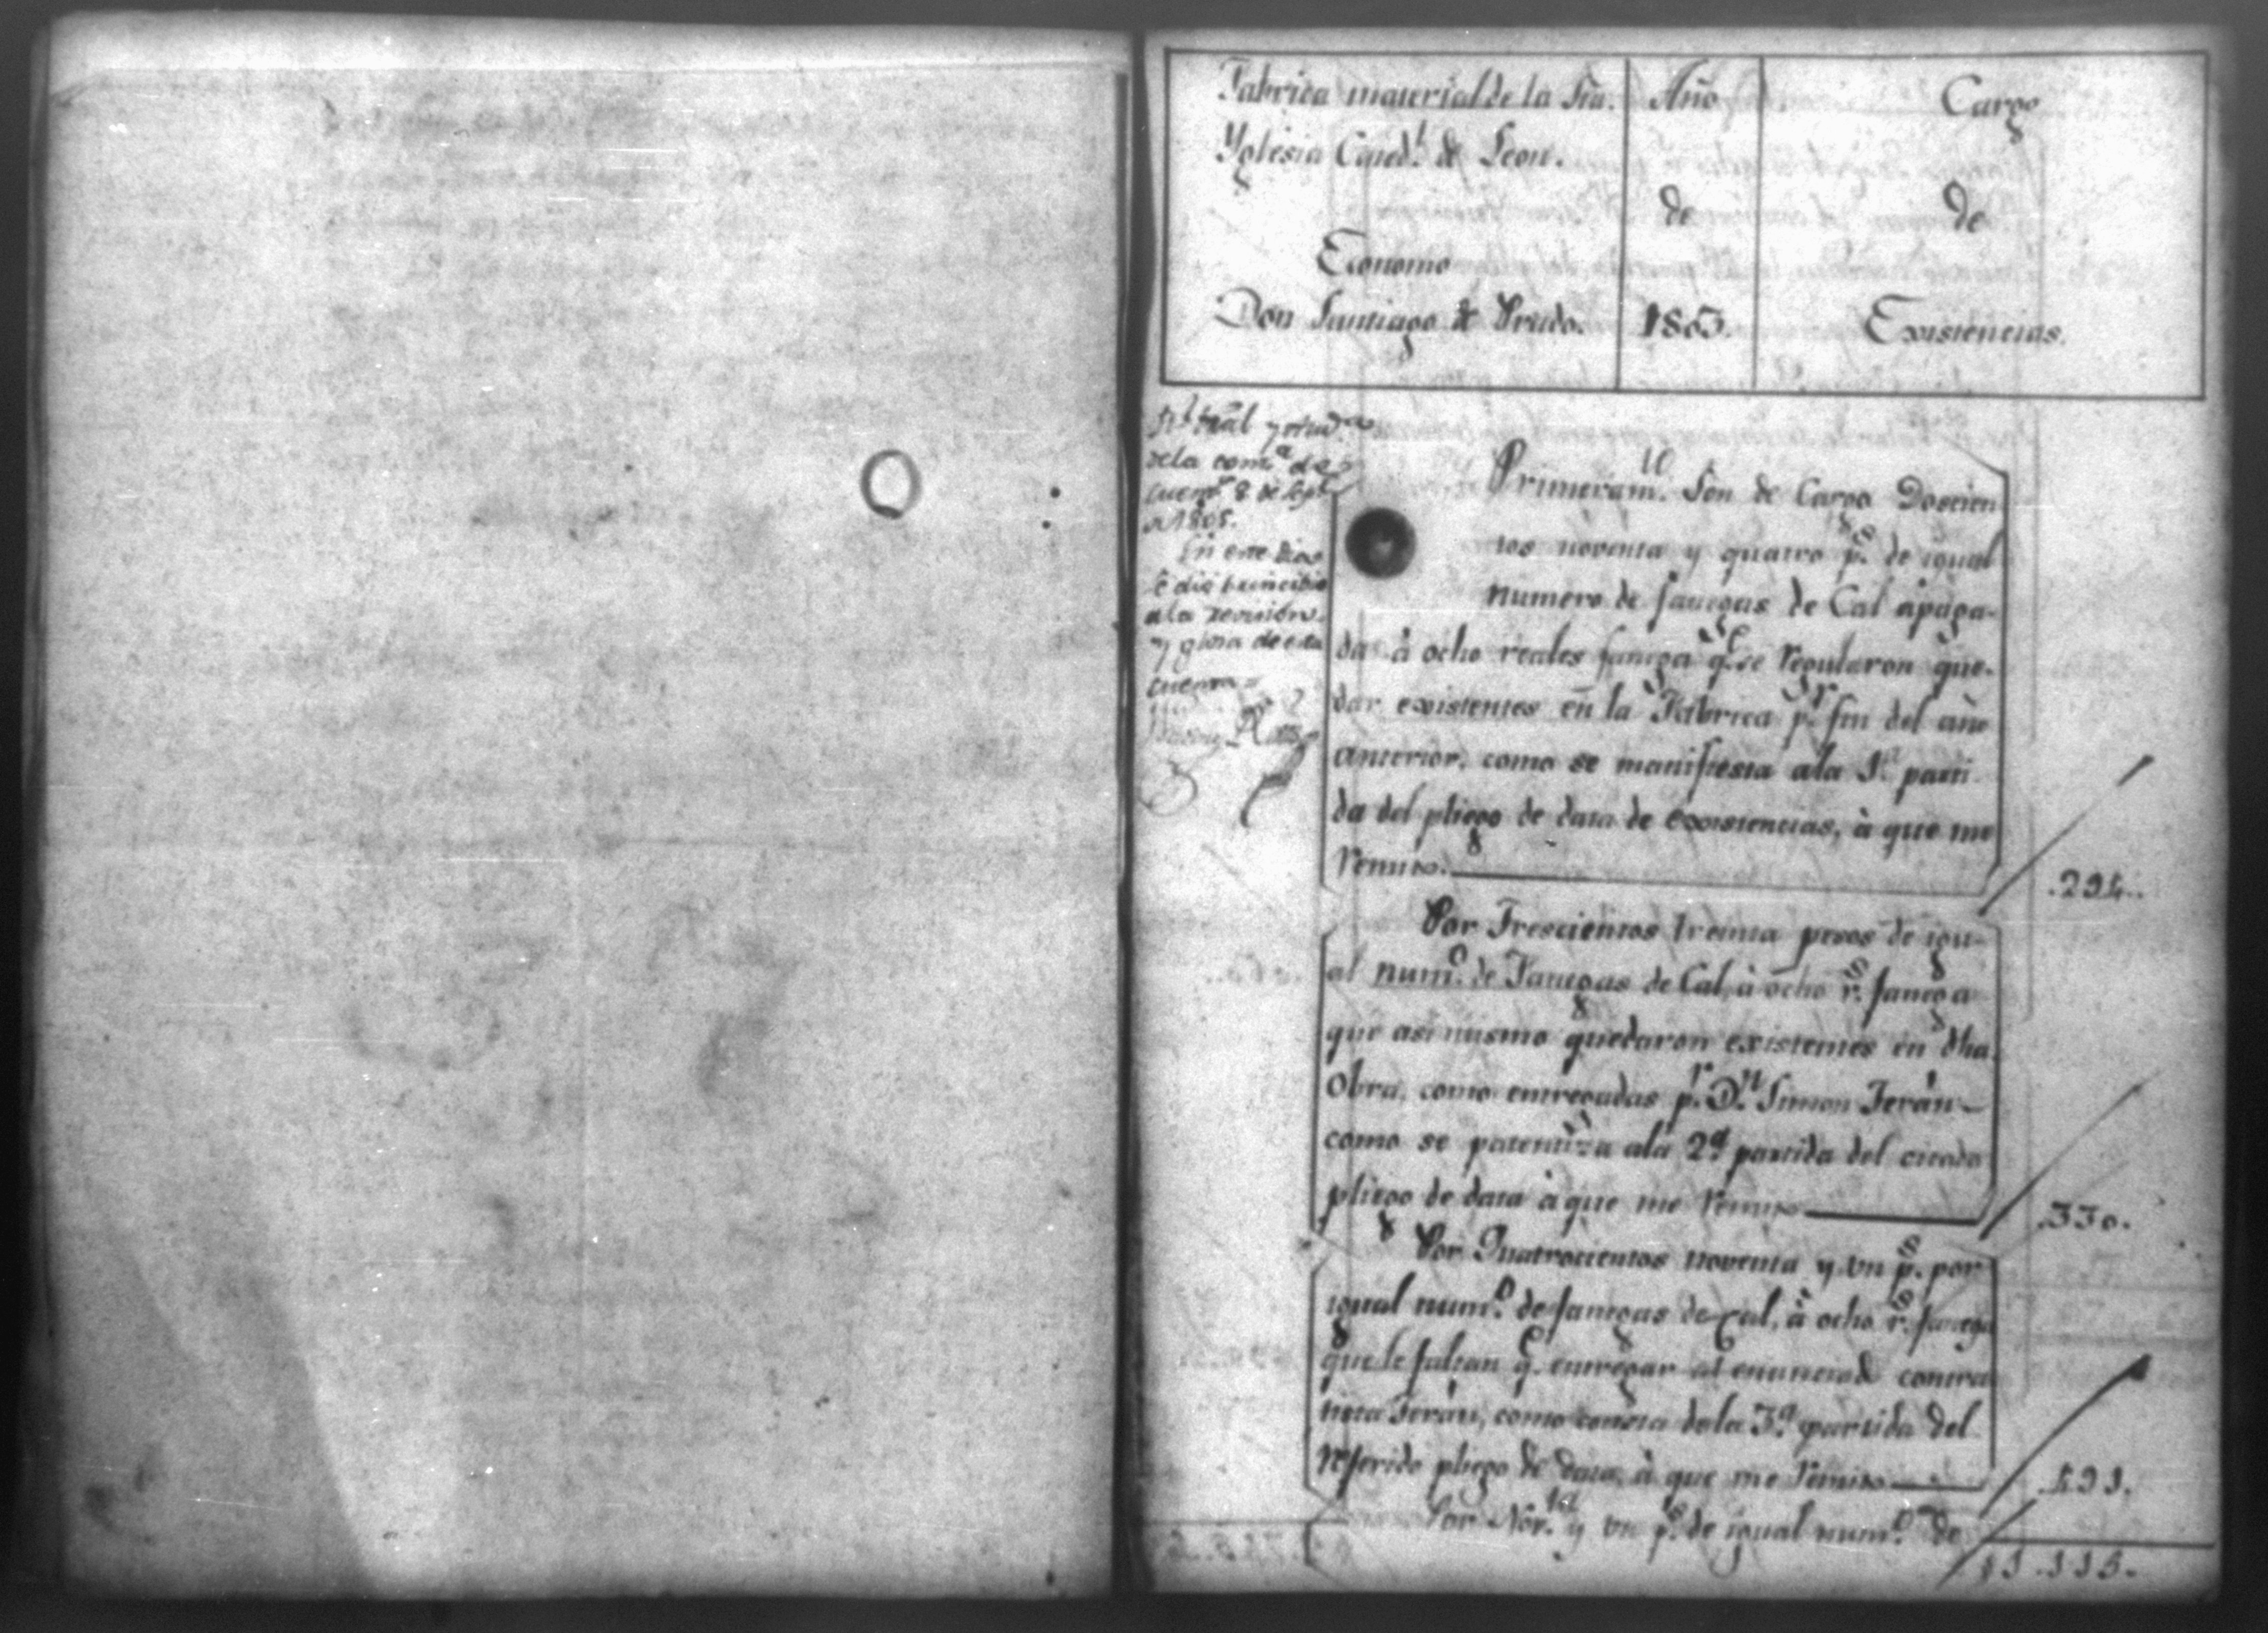 Fabrica material de la Sta.
Yglesia Cated.l de Leon.
Economo
Don Santiago de Prado.
Año
de
1803.
Cargo
de
Existencias.
de la com.n de
cuent.s 8 de Sept.
1805.
En este dia
se dio principio
a la revision
y glosa de esta
cuenta
Primeram.te Son de Cargo Doscien
tos noventa y quatro p.s de igual
numero de fanegas de Cal apaga-
da à ocho reales fanega q.e se regularon que-
dar existentes en la Fabrica p.r fin del año
anterior, como se manifiesta ala 1.a parti
da del pliego de data de existencias, à que me
remito. .294..
Por Trescientos treinta pesos de igu-
al num.o de Fanegas de Cal, à ocho r.s fanega
que asi mismo quedaron existentes en dha
Obra, como entregadas p.r D.n Simon Terán
como se patentiza ala 2.a partida del citado
pliego de data à que me remito .330.
Por Quatrocientos noventa y un p.s por
igual num.o de fanegas de Cal, à ocho r.s fanega
que le faltan q.e entregar al enunciad contra
tista Terán, como consta dela 3.a partida del
referido pliego de data, à que me remito .491.
Por Nov.ta y un p.s de igual num.o de
1.115.